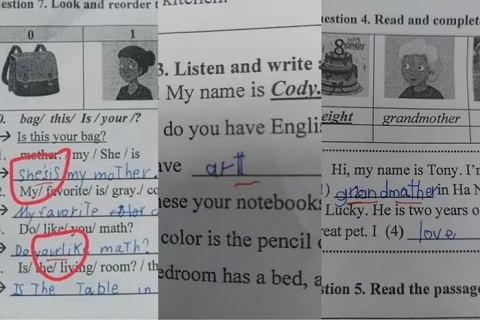 estion 7. Look and reorder t
0
1
0. bag/ this/ Is /your /?
→ Is this your bag?
1. mother. / my / She / is
→ She'sis my moTher.
2. My/ favorite/ is/ gray./ co
→ My favorite color c
3. Do/ like/ you/ math?
→ Do yourlik math?
4. Is/ the/ living/ room? / th
→ Is The Table in
3. Listen and write a
My name is Cody.
do you have Englis
ave artt
ese your notebooks
color is the pencil c
edroom has a bed, a
estion 4. Read and complet
8
eight
grandmother
Hi, my name is Tony. I'm
) grandmather in Ha N
Lucky. He is two years o
reat pet. I (4) love
stion 5. Read the passage